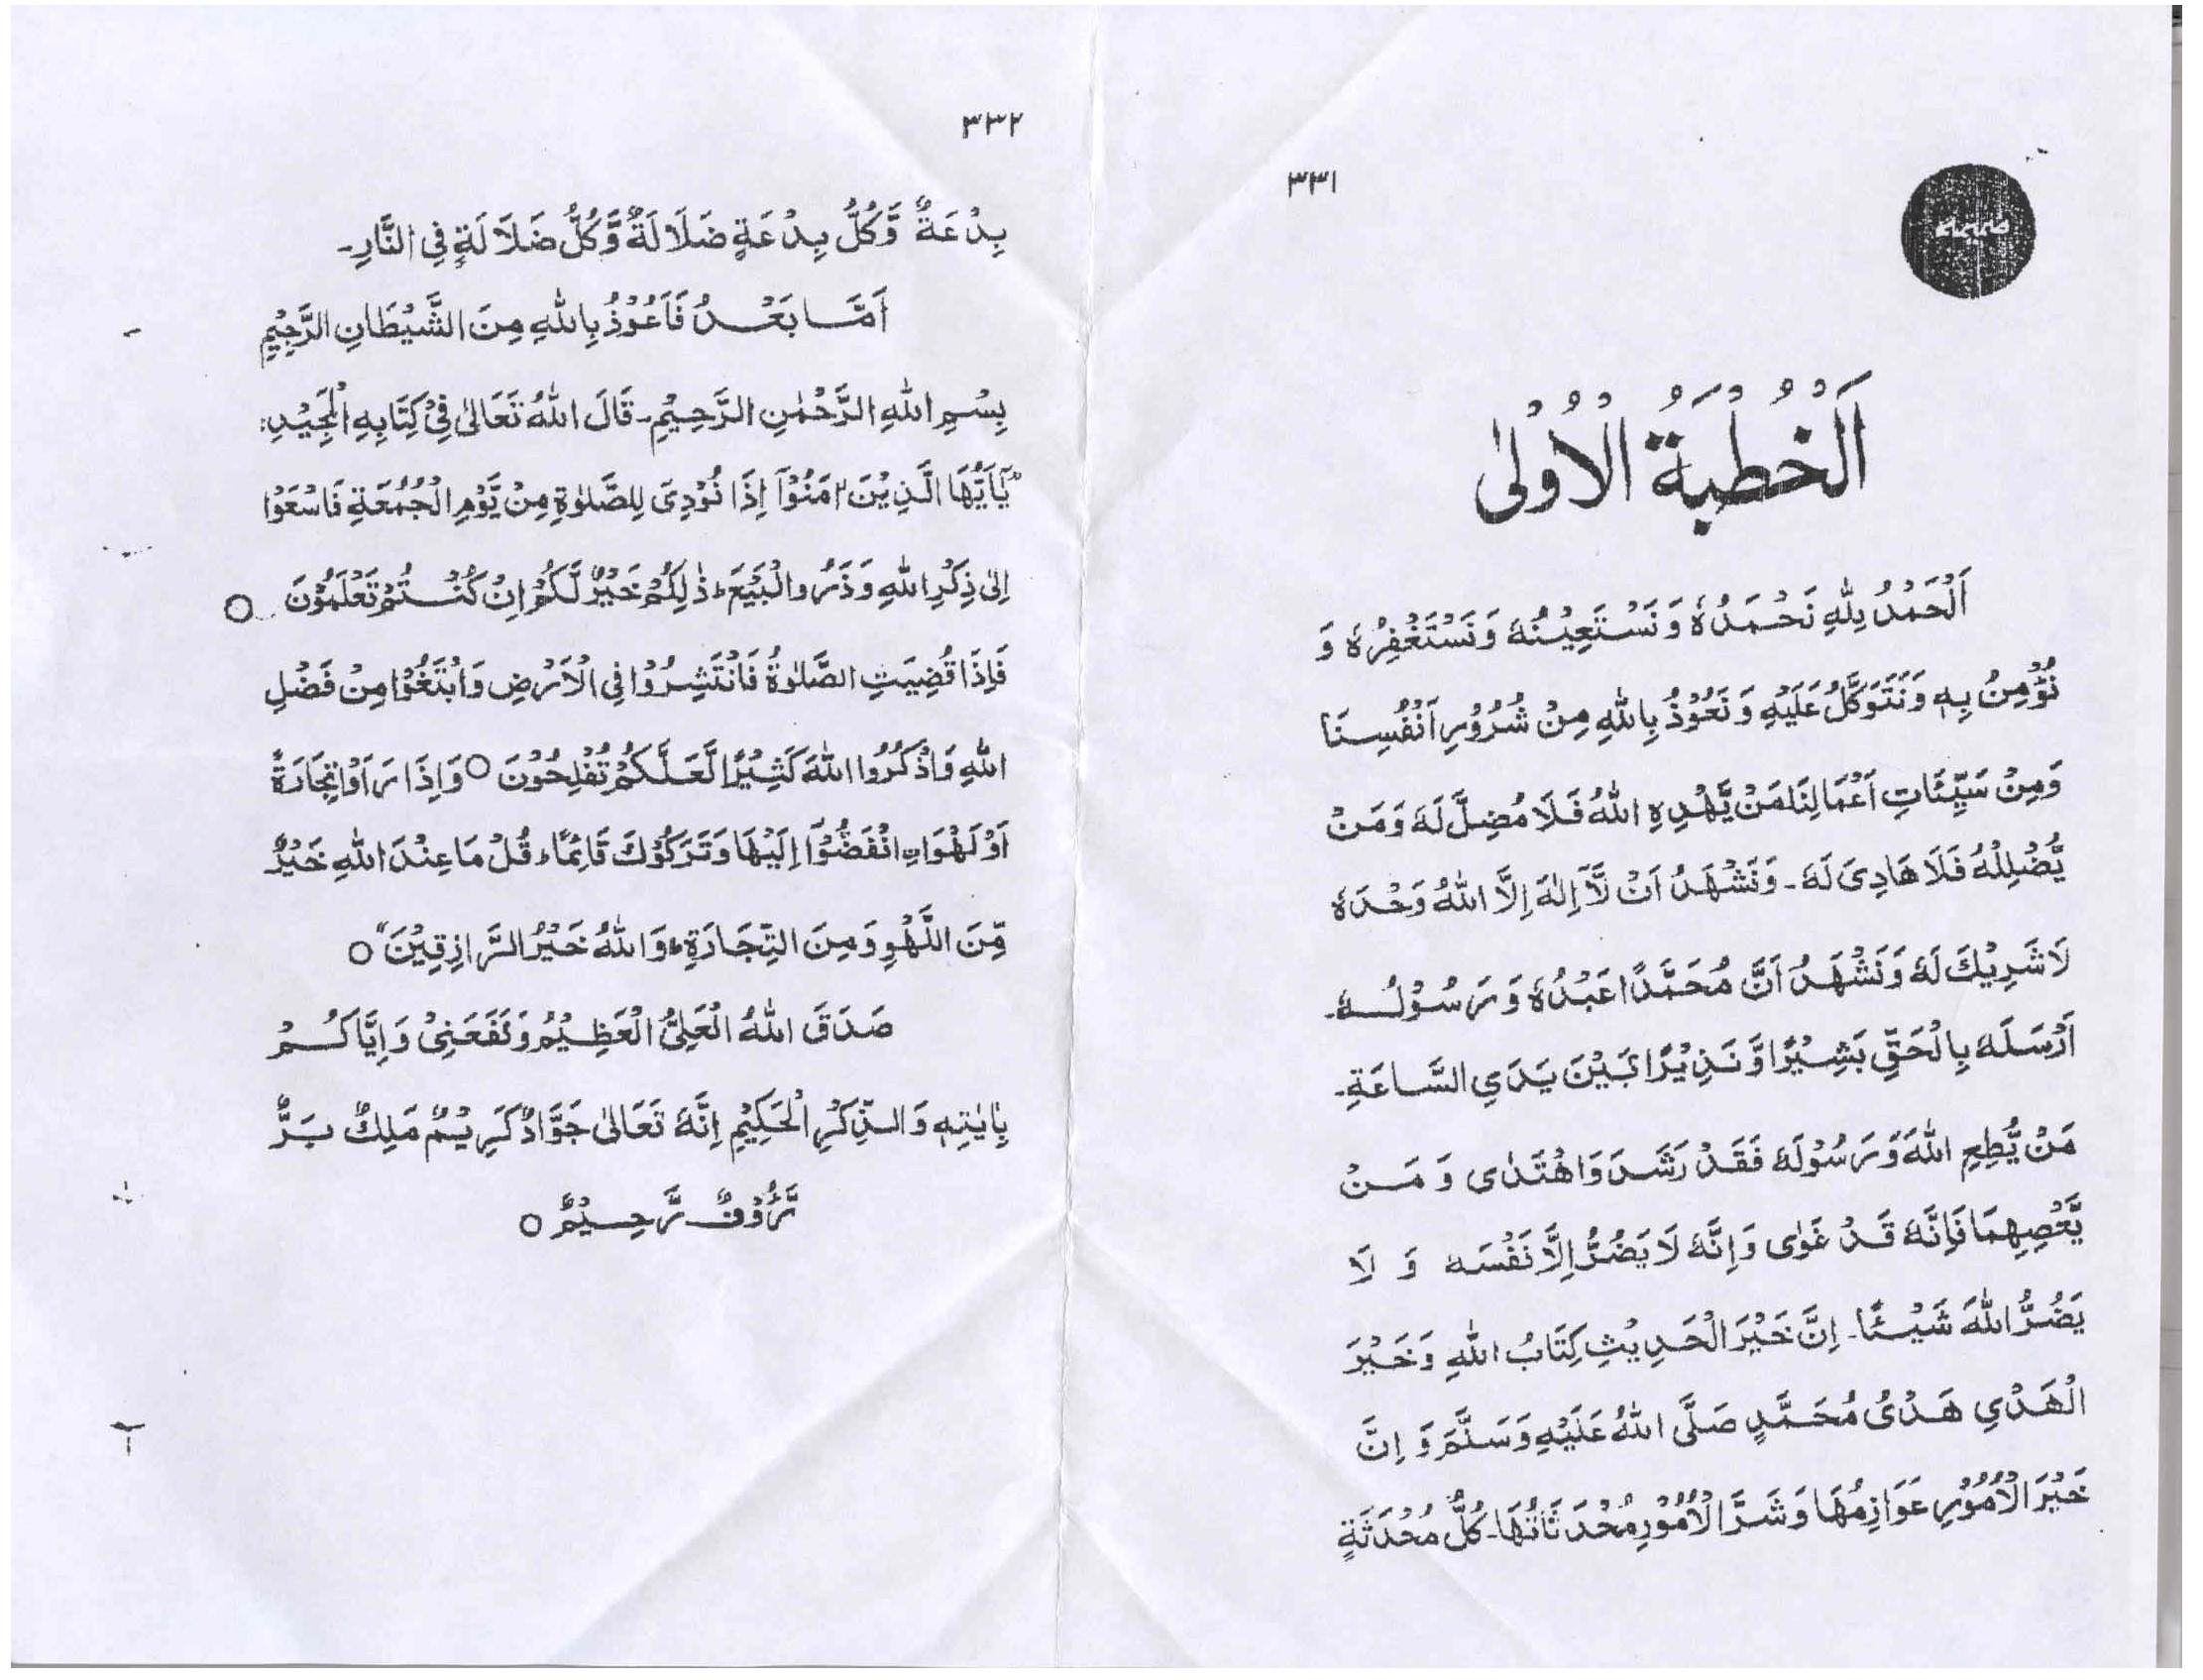 ٣٣١
ضمیمہ
اَلْخُطْبَةُ الْاُوْلٰى
اَلْحَمْدُ لِلّٰهِ نَحْمَدُهٗ وَنَسْتَعِيْنُهٗ وَنَسْتَغْفِرُهٗ وَ
نُؤْمِنُ بِهٖ وَنَتَوَكَّلُ عَلَيْهِ وَنَعُوْذُ بِاللّٰهِ مِنْ شُرُوْرِ اَنْفُسِنَا
وَمِنْ سَيِّئَاتِ اَعْمَالِنَا مَنْ يَّهْدِهِ اللّٰهُ فَلَا مُضِلَّ لَهٗ وَمَنْ
يُّضْلِلْهُ فَلَا هَادِىَ لَهٗ۔ وَنَشْهَدُ اَنْ لَّآ اِلٰهَ اِلَّا اللّٰهُ وَحْدَهٗ
لَا شَرِيْكَ لَهٗ وَنَشْهَدُ اَنَّ مُحَمَّدًا عَبْدُهٗ وَرَسُوْلُهٗ۔
اَرْسَلَهٗ بِالْحَقِّ بَشِيْرًا وَّنَذِيْرًا بَيْنَ يَدَيِ السَّاعَةِ۔
مَنْ يُّطِعِ اللّٰهَ وَرَسُوْلَهٗ فَقَدْ رَشَدَ وَاهْتَدٰى وَمَنْ
يَّعْصِهِمَا فَاِنَّهٗ قَدْ غَوٰى وَاِنَّهٗ لَا يَضُرُّ اِلَّا نَفْسَهٗ وَ لَا
يَضُرُّ اللّٰهَ شَيْئًا۔ اِنَّ خَيْرَ الْحَدِيْثِ كِتَابُ اللّٰهِ وَخَيْرَ
الْهَدْيِ هَدْىُ مُحَمَّدٍ صَلَّى اللّٰهُ عَلَيْهِ وَسَلَّمَ وَ اِنَّ
خَيْرَ الْاُمُوْرِ عَوَازِمُهَا وَشَرَّ الْاُمُوْرِ مُحْدَثَاتُهَا۔ كُلُّ مُحْدَثَةٍ
٣٣٢
بِدْعَةٌ وَّكُلُّ بِدْعَةٍ ضَلَالَةٌ وَّكُلُّ ضَلَالَةٍ فِي النَّارِ۔
اَمَّا بَعْدُ فَاَعُوْذُ بِاللّٰهِ مِنَ الشَّيْطَانِ الرَّجِيْمِ
بِسْمِ اللّٰهِ الرَّحْمٰنِ الرَّحِيْمِ۔ قَالَ اللّٰهُ تَعَالٰى فِيْ كِتَابِهِ الْمَجِيْدِ:
"يٰٓاَيُّهَا الَّذِيْنَ اٰمَنُوْٓا اِذَا نُوْدِىَ لِلصَّلٰوةِ مِنْ يَّوْمِ الْجُمُعَةِ فَاسْعَوْا
اِلٰى ذِكْرِ اللّٰهِ وَذَرُوا الْبَيْعَ ؕ ذٰلِكُمْ خَيْرٌ لَّكُمْ اِنْ كُنْتُمْ تَعْلَمُوْنَ ○
فَاِذَا قُضِيَتِ الصَّلٰوةُ فَانْتَشِرُوْا فِي الْاَرْضِ وَابْتَغُوْا مِنْ فَضْلِ
اللّٰهِ وَاذْكُرُوا اللّٰهَ كَثِيْرًا لَّعَلَّكُمْ تُفْلِحُوْنَ ○ وَاِذَا رَاَوْا تِجَارَةً
اَوْ لَهْوَاۨ انْفَضُّوْٓا اِلَيْهَا وَتَرَكُوْكَ قَائِمًا ؕ قُلْ مَا عِنْدَ اللّٰهِ خَيْرٌ
مِّنَ اللَّهْوِ وَمِنَ التِّجَارَةِ ؕ وَاللّٰهُ خَيْرُ الرَّازِقِيْنَ" ○
صَدَقَ اللّٰهُ الْعَلِىُّ الْعَظِيْمُ وَنَفَعَنِيْ وَاِيَّاكُمْ
بِاٰيٰتِهٖ وَالذِّكْرِ الْحَكِيْمِ اِنَّهٗ تَعَالٰى جَوَّادٌ كَرِيْمٌ مَلِكٌ بَرٌّ
رَّؤُوْفٌ رَّحِيْمٌ ○